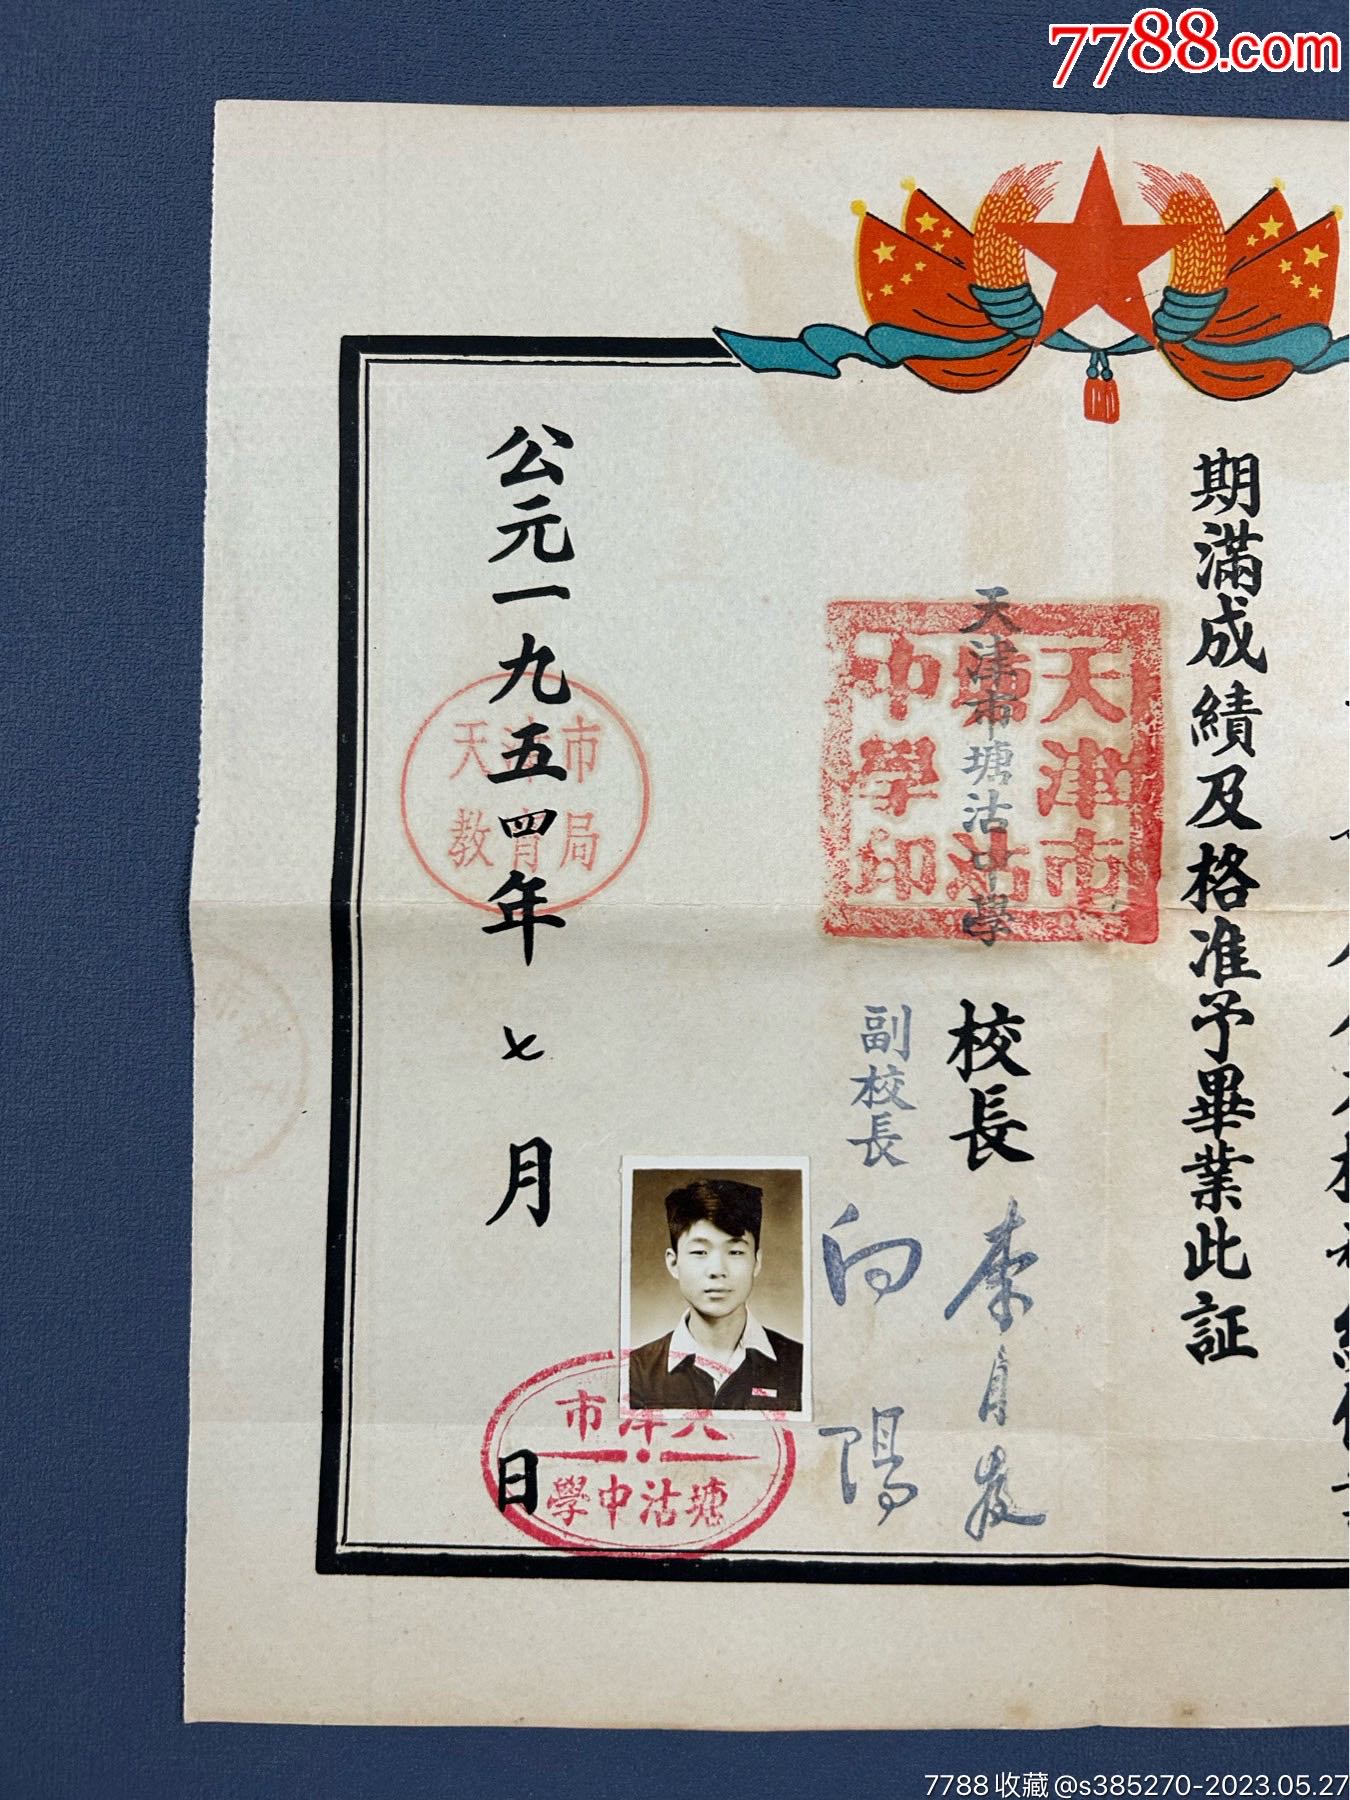 7788.com
期滿成績及格准予畢業此証
天津市塘沽中學
校長
副校長 向陽
天津市塘沽中學印
公元一九五四年七月 日
天津市
教育局
天津市
塘沽中學
7788收藏@s385270-2023.05.27